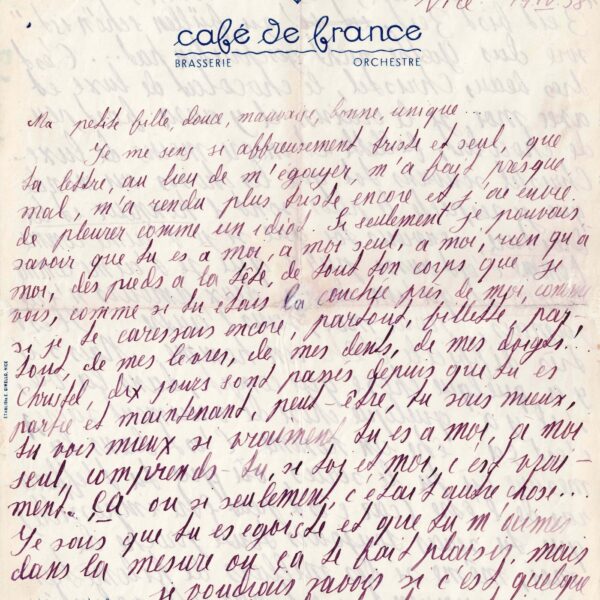 Nice 19 IV 38
café de france
BRASSERIE ORCHESTRE
Ma petite fille, douce, mauvaise, bonne, unique...
Je me sens si affreusement triste et seul, que
ta lettre, au lieu de m'égayer, m'a fait presque
mal, m'a rendu plus triste encore et j'ai envie
de pleurer comme un idiot. Si seulement je pouvais
savoir que tu es a moi, a moi seul, a moi, rien qu'a
moi, des pieds a la tête, de tout ton corps que je
vois, comme si tu étais la couchée près de moi, comme
si je te caressais encore, partout, fillette, par-
tout, de mes levres, de mes dents, de mes doigts!
Christel dix jours sont passés depuis que tu es
partie et maintenant, peut-être, tu sais mieux,
tu vois mieux si vraiment tu es a moi, a moi
seul, comprends-tu, si toi et moi, c'est vrai-
ment ça ou si seulement, c'était autre chose...
Je sais que tu es egoiste et que tu m'aimes
dans la mesure ou ça te fait plaisir, mais
je voudrais savoir si c'est quelque